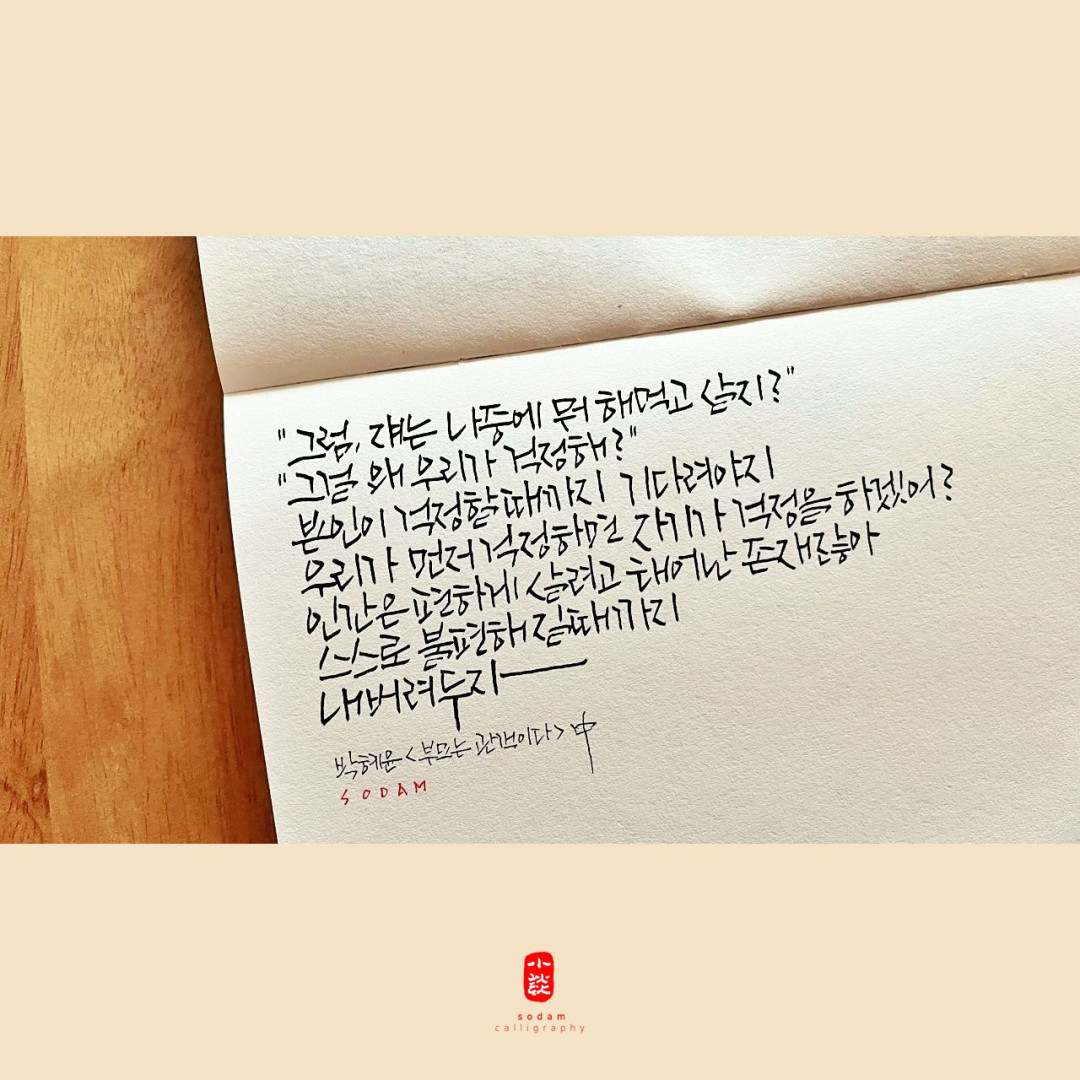 "그럼, 걔는 나중에 뭐 해먹고 살지?"
"그걸 왜 우리가 걱정해?"
본인이 걱정할 때까지 기다려야지
우리가 먼저 걱정하면 자기가 걱정을 하겠어?
인간은 편하게 살려고 태어난 존재잖아
스스로 불편해질때까지
내버려두지ㅡ
박혜윤 <부모는 관객이다> 中
SODAM
小談
sodam
calligraphy